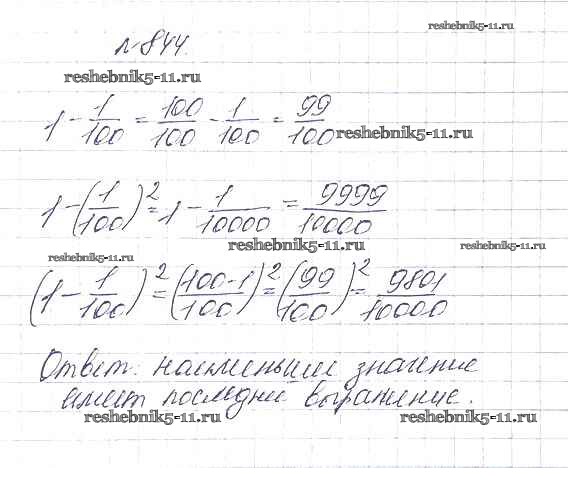 reshebnik5-11.ru
№844.
reshebnik5-11.ru
1 - 1/100 = 100/100 - 1/100 = 99/100
reshebnik5-11.ru
1 - (1/100)² = 1 - 1/10000 = 9999/10000
reshebnik5-11.ru
reshebnik5-11.ru
reshebnik5-11.ru
(1 - 1/100)² = (100-1/100)² = (99/100)² = 9801/10000
Ответ: наименьшее значение
имеет последнее выражение.
reshebnik5-11.ru
reshebnik5-11.ru